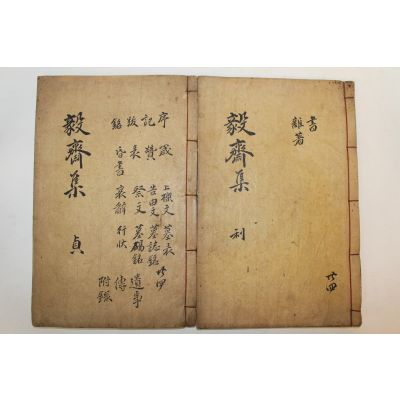 書
雜著
共四
毅齋集 利
序 箴 上樑文 墓表
記 贊 告由文 墓誌銘 共四
跋 表 祭文 墓碣銘 遺事
銘 昏書 哀辭 行狀 傳
附錄
毅齋集 貞